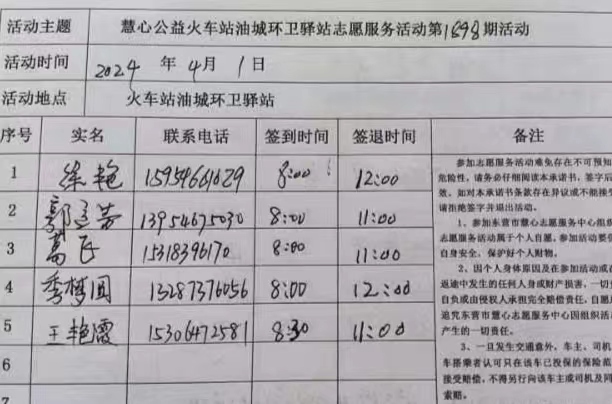 活动主题 慧心公益火车站油城环卫驿站志愿服务活动第1898期活动
活动时间 2024 年 4月 1日
活动地点 火车站油城环卫驿站
序号 实名 联系电话 签到时间 签退时间 备注
1 徐艳 15954661629 8:00 12:00
2 13954675030 8:00 11:00
3 葛民 15318396170 8:00 11:00
4 季梦圆 13287376056 8:00 12:00
5 王艳霞 15306472581 8:30 11:00
6
7
参加志愿服务活动难免存在不可预知
危险性，请务必仔细阅读本承诺书，签字后
效。如对本承诺书条款存在异议或不能接受
请拒绝签字并退出活动。
1、参加东营市慧心志愿服务中心组织
志愿服务活动属于个人自愿，参加活动要
自身安全、保护好个人财物。
2、因个人身体原因及在参加活动或
返途中发生的任何人身或财产损害，一切
自负或由侵权人承担完全赔偿责任，自愿
追究东营市慧心志愿服务中心因组织活
产生的一切责任。
3、一旦发生交通意外，车主、司机
车搭乘者认可只在该车已投保的保险范
接受赔偿，不得另行向该车主或司机及同
索赔。